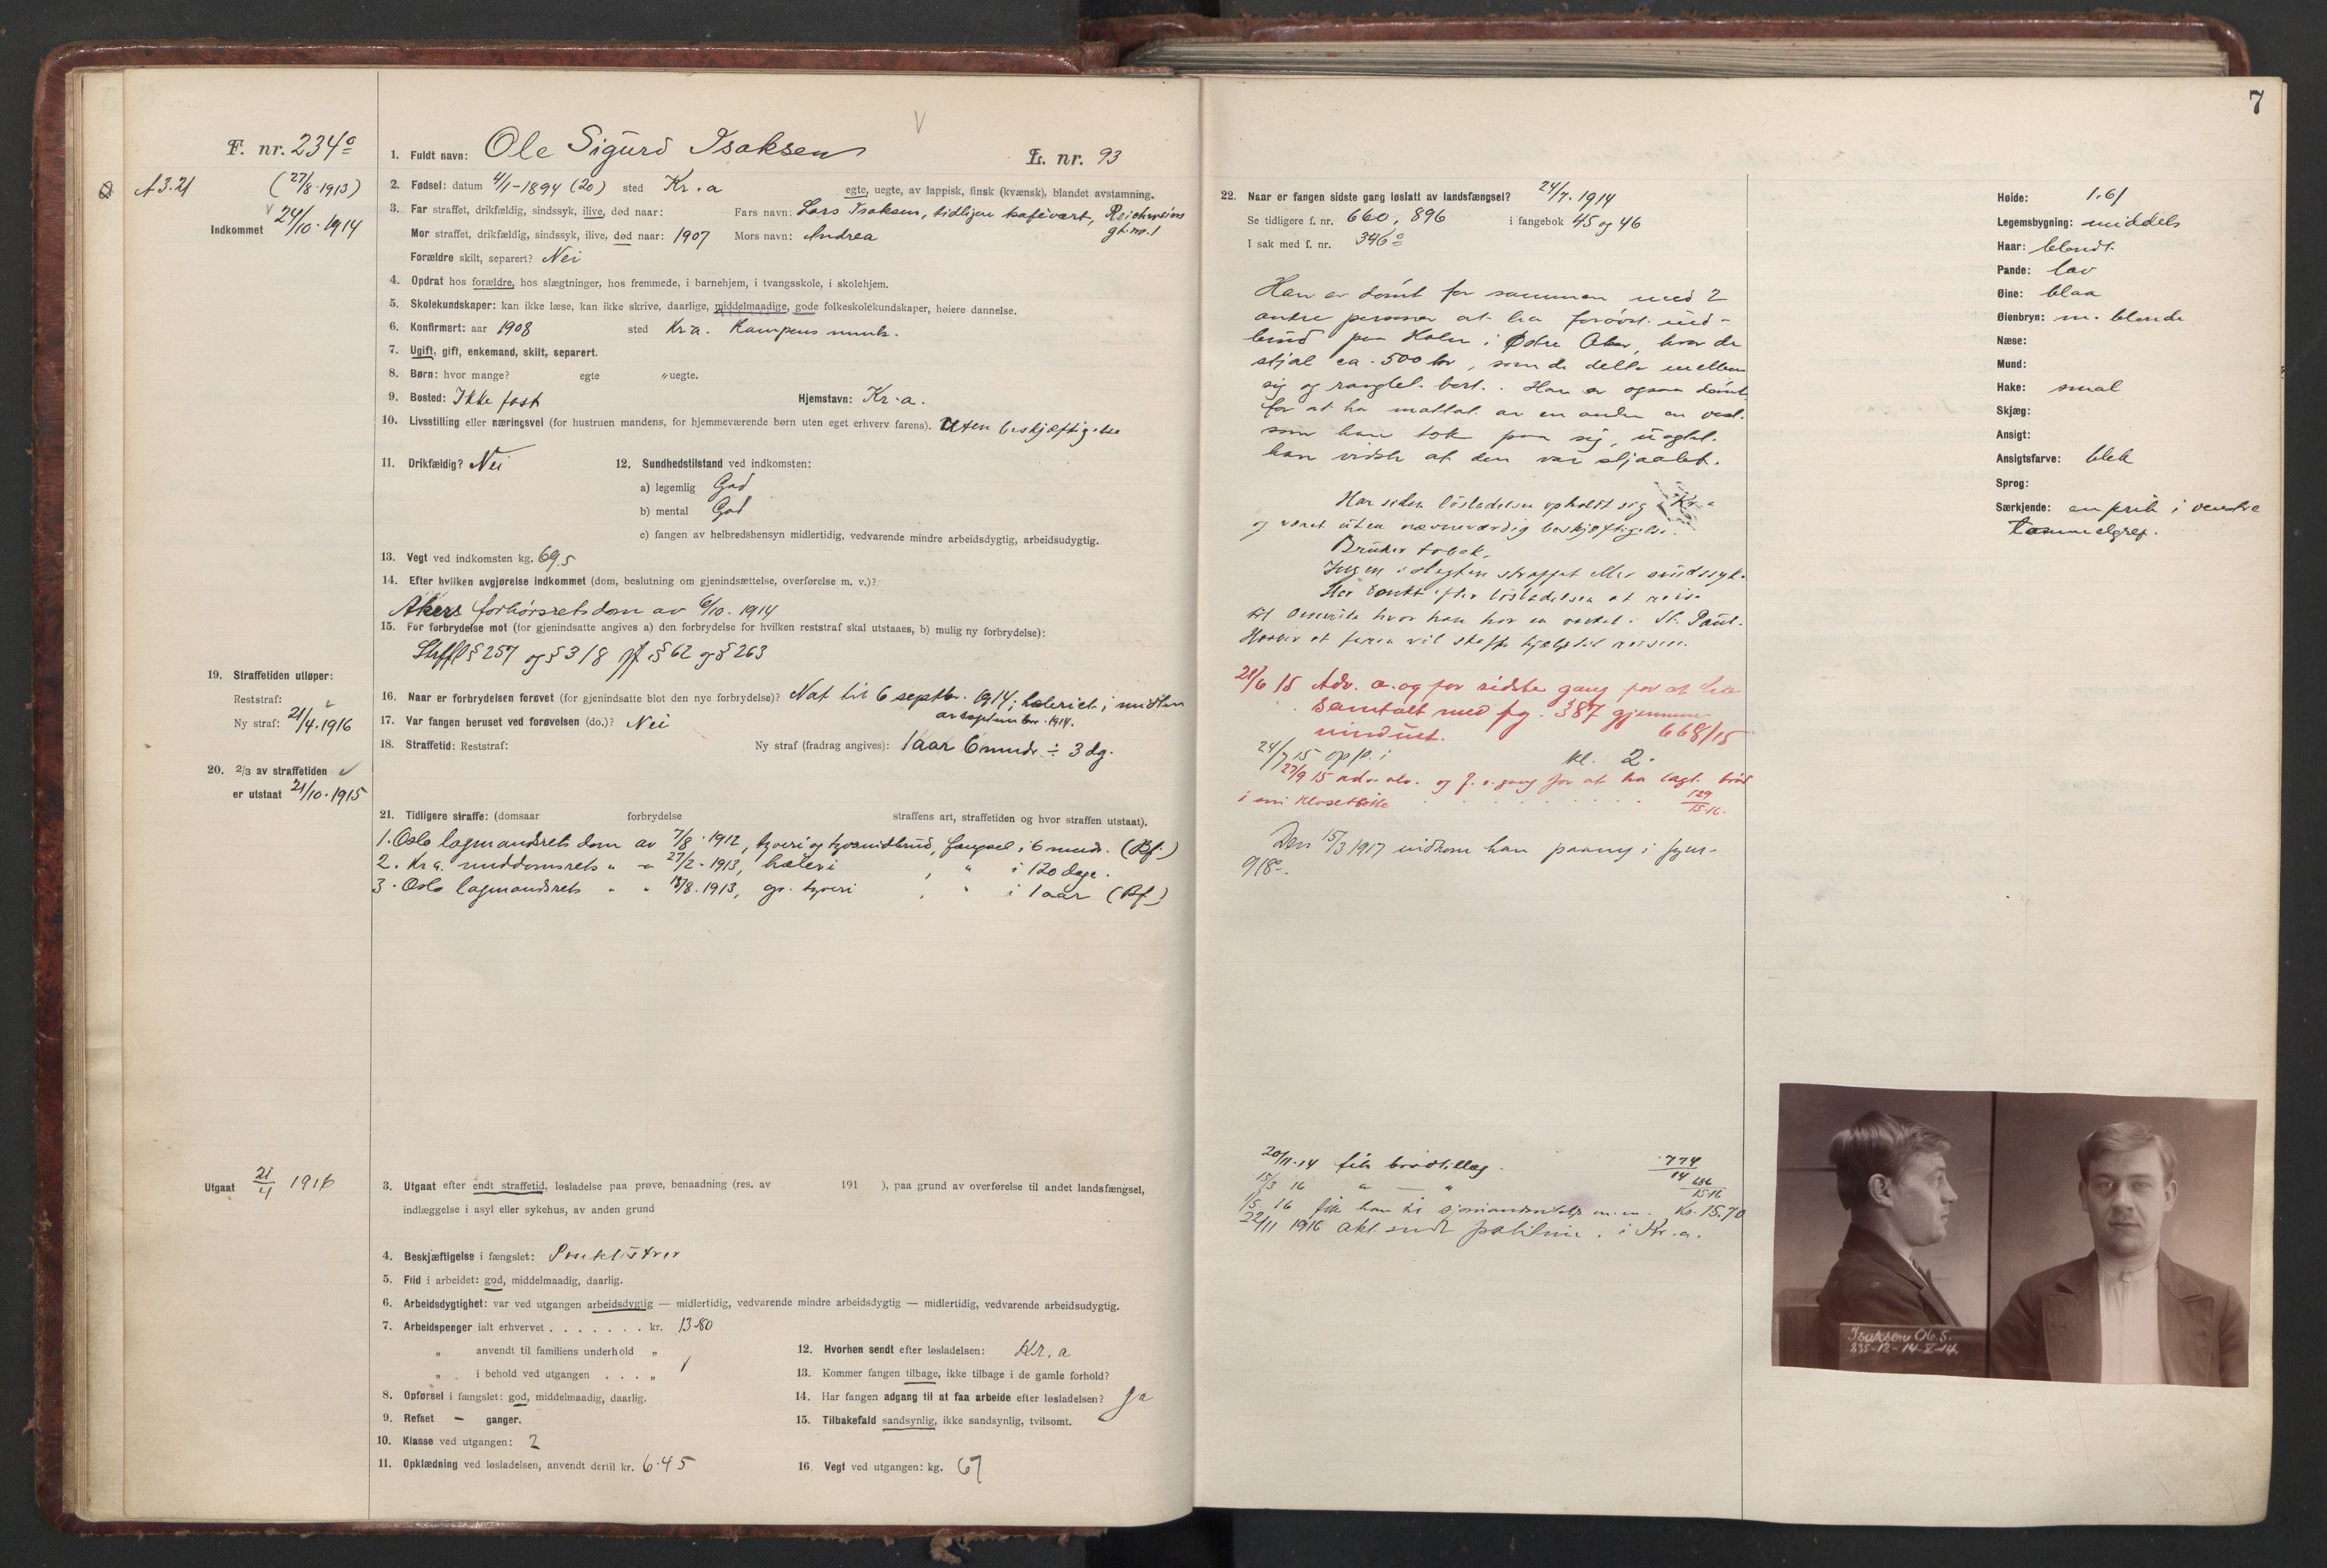 7
F. nr. 234⁰
A 3.21
(27/8·1913)
Indkommet 24/10·1914
1. Fuldt navn: Ole Sigurd Isaksen
L. nr. 93
2. Fødsel: datum 4/1-1894 (20) sted Kr.a
egte, uegte, av lappisk, finsk (kvænsk), blandet avstamning.
3. Far straffet, drikfældig, sindssyk, ilive, død naar: Fars navn: Lars Isaksen, tidligere kafévært,
gt. no. 1
Mor straffet, drikfældig, sindssyk, ilive, død naar: 1907 Mors navn: Andrea
Forældre skilt, separert? Nei
4. Opdrat hos forældre, hos slægtninger, hos fremmede, i barnehjem, i tvangsskole, i skolehjem.
5. Skolekundskaper: kan ikke læse, kan ikke skrive, daarlige, middelmaadige, gode folkeskolekundskaper, høiere dannelse.
6. Konfirmert: aar 1908 sted Kr.a. Kampens
7. Ugift, gift, enkemand, skilt, separert.
8. Børn: hvor mange? egte " uegte.
9. Bosted: Ikke fast Hjemstavn: Kr.a.
10. Livsstilling eller næringsvei (for hustruen mandens, for hjemmeværende børn uten eget erhverv farens). Uten beskjæftigelse
11. Drikfældig? Nei 12. Sundhedstilstand ved indkomsten:
a) legemlig God
b) mental God
c) fangen av helbredshensyn midlertidig, vedvarende mindre arbeidsdygtig, arbeidsudygtig.
13. Vegt ved indkomsten kg. 69.5
14. Efter hvilken avgjørelse indkommet (dom, beslutning om gjenindsættelse, overførelse m. v.)?
Akers forhørsrets dom av 6/10. 1914
15. For forbrydelse mot (for gjenindsatte angives a) den forbrydelse for hvilken reststraf skal utstaaes, b) mulig ny forbrydelse):
Strfl § 257 og § 318 jf. § 62 og § 263
16. Naar er forbrydelsen forøvet (for gjenindsatte blot den nye forbrydelse)? Nat til 6 septbr. 1914; hæleriet i midten
av september 1914.
17. Var fangen beruset ved forøvelsen (do.)? Nei
18. Straffetid: Reststraf: Ny straf (fradrag angives): 1 aar 6 mndr ÷ 3 dg.
19. Straffetiden utløper:
Reststraf:
Ny straf: 21/4.1916
20. 2/3 av straffetiden
er utstaat 21/10·1915
21. Tidligere straffe: (domsaar forbrydelse straffens art, straffetiden og hvor straffen utstaat).
1. Oslo lagmandsrets dom av 7/8·1912, tyveri og tyvsindbrud, fængsel i 6 mndr. (Bf.)
2. Kr.a. meddomsrets " " 27/2-1913, hæleri , " i 120 dage.
3. Oslo lagmandsrets " " 18/8.1913, gr. tyveri , " i 1 aar (Bf.)
Utgaat 21/4 1916
3. Utgaat efter endt straffetid, løsladelse paa prøve, benaadning (res. av 191 ), paa grund av overførelse til andet landsfængsel,
indlæggelse i asyl eller sykehus, av anden grund
4. Beskjæftigelse i fængslet:
5. Flid i arbeidet: god, middelmaadig, daarlig.
6. Arbeidsdygtighet: var ved utgangen arbeidsdygtig — midlertidig, vedvarende mindre arbeidsdygtig — midlertidig, vedvarende arbeidsudygtig.
7. Arbeidspenger ialt erhvervet . . . . . . . kr. 13.80
" anvendt til familiens underhold "
" i behold ved utgangen . . . "
8. Opførsel i fængslet: god, middelmaadig, daarlig.
9. Refset — ganger.
10. Klasse ved utgangen: 2
11. Opklædning ved løsladelsen, anvendt dertil kr. 6.45
12. Hvorhen sendt efter løsladelsen: Kr. a
13. Kommer fangen tilbage, ikke tilbage i de gamle forhold?
14. Har fangen adgang til at faa arbeide efter løsladelsen? Ja
15. Tilbakefald sandsynlig, ikke sandsynlig, tvilsomt.
16. Vegt ved utgangen: kg. 67
22. Naar er fangen sidste gang løslatt av landsfængsel? 24/7.1914
Se tidligere f. nr. 660, 896 i fangebok 45 og 46
I sak med f. nr. 346⁰
Han er dømt for sammen med 2
andre personer at ha forøvet ind-
brud paa Holen i Østre Aker, hvor de
stjal ca. 500 kr, som de delte mellem
sig og ranglet bort. Han er ogsaa dømt
for at ha mottat av en anden en vest
som han tok paa sig, uagtet
han vidste at den var stjaalet.
Har siden løsladelsen opholdt sig i Kr.a
og været uten nævneværdig beskjæftigelse.
Bruker tobak.
Ingen i slegten straffet eller sindssyk.
Har tænkt efter løsladelsen at reise
til Amerika hvor han har en onkel i St. Paul.
Haaber at faren vil skaffe hjælp til reisen.
21/6 15 Adv. a. og for sidste gang for at ha
samtalt med fg. 387 gjennem
vinduet. 668/15
24/7 15 opfl. i kl. 2.
27/9 15 adv. alv. og f. s. gang for at ha lagt brød
i sin klosetbøtte 129/15-16.
Den 15/3 1917 indkom han paany i fgnr.
918⁰.
20/11-14 fik brødtillæg. 774/14
15/3 16 " — " 686/15-16
1/5. 16 fik han m.m. Kr. 15.70
22/11 1916 akt. sendt politiet i Kr.a.
Høide: 1.61
Legemsbygning: middels
Haar: blondt
Pande: lav
Øine: blaa
Øienbryn: m. blonde
Næse:
Mund:
Hake: smal
Skjæg:
Ansigt:
Ansigtsfarve: blek
Sprog:
Særkjende: en prik i venstre
tommelgrep.
Isaksen Ole S.
235-12-14-X-14